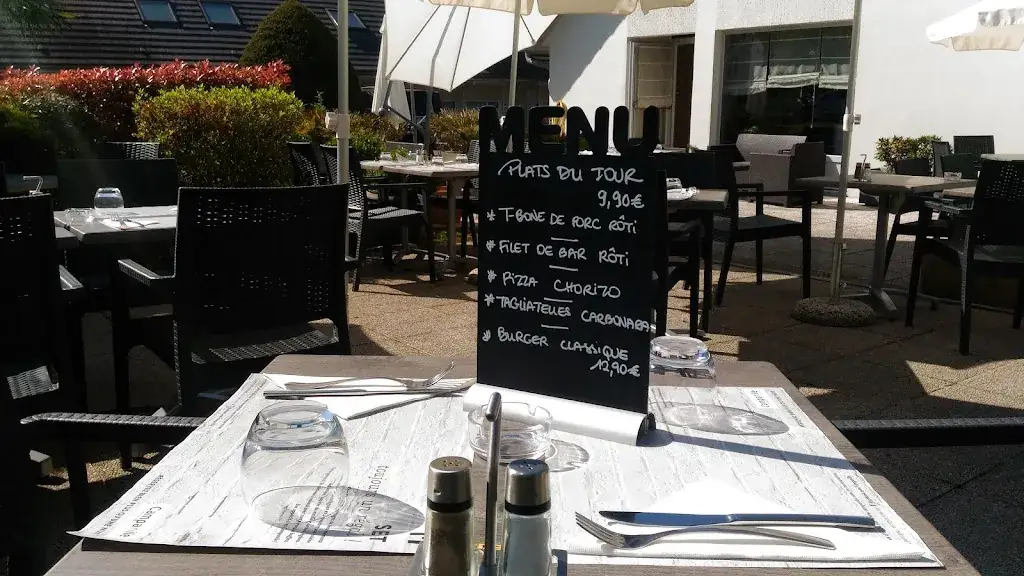 MENU
PLATS DU JOUR
9,90€
* T-BONE DE PORC RÔTI
* FILET DE BAR RÔTI
* PIZZA CHORIZO
* TAGLIATELLES CARBONARA
* BURGER CLASSIQUE
12,90€